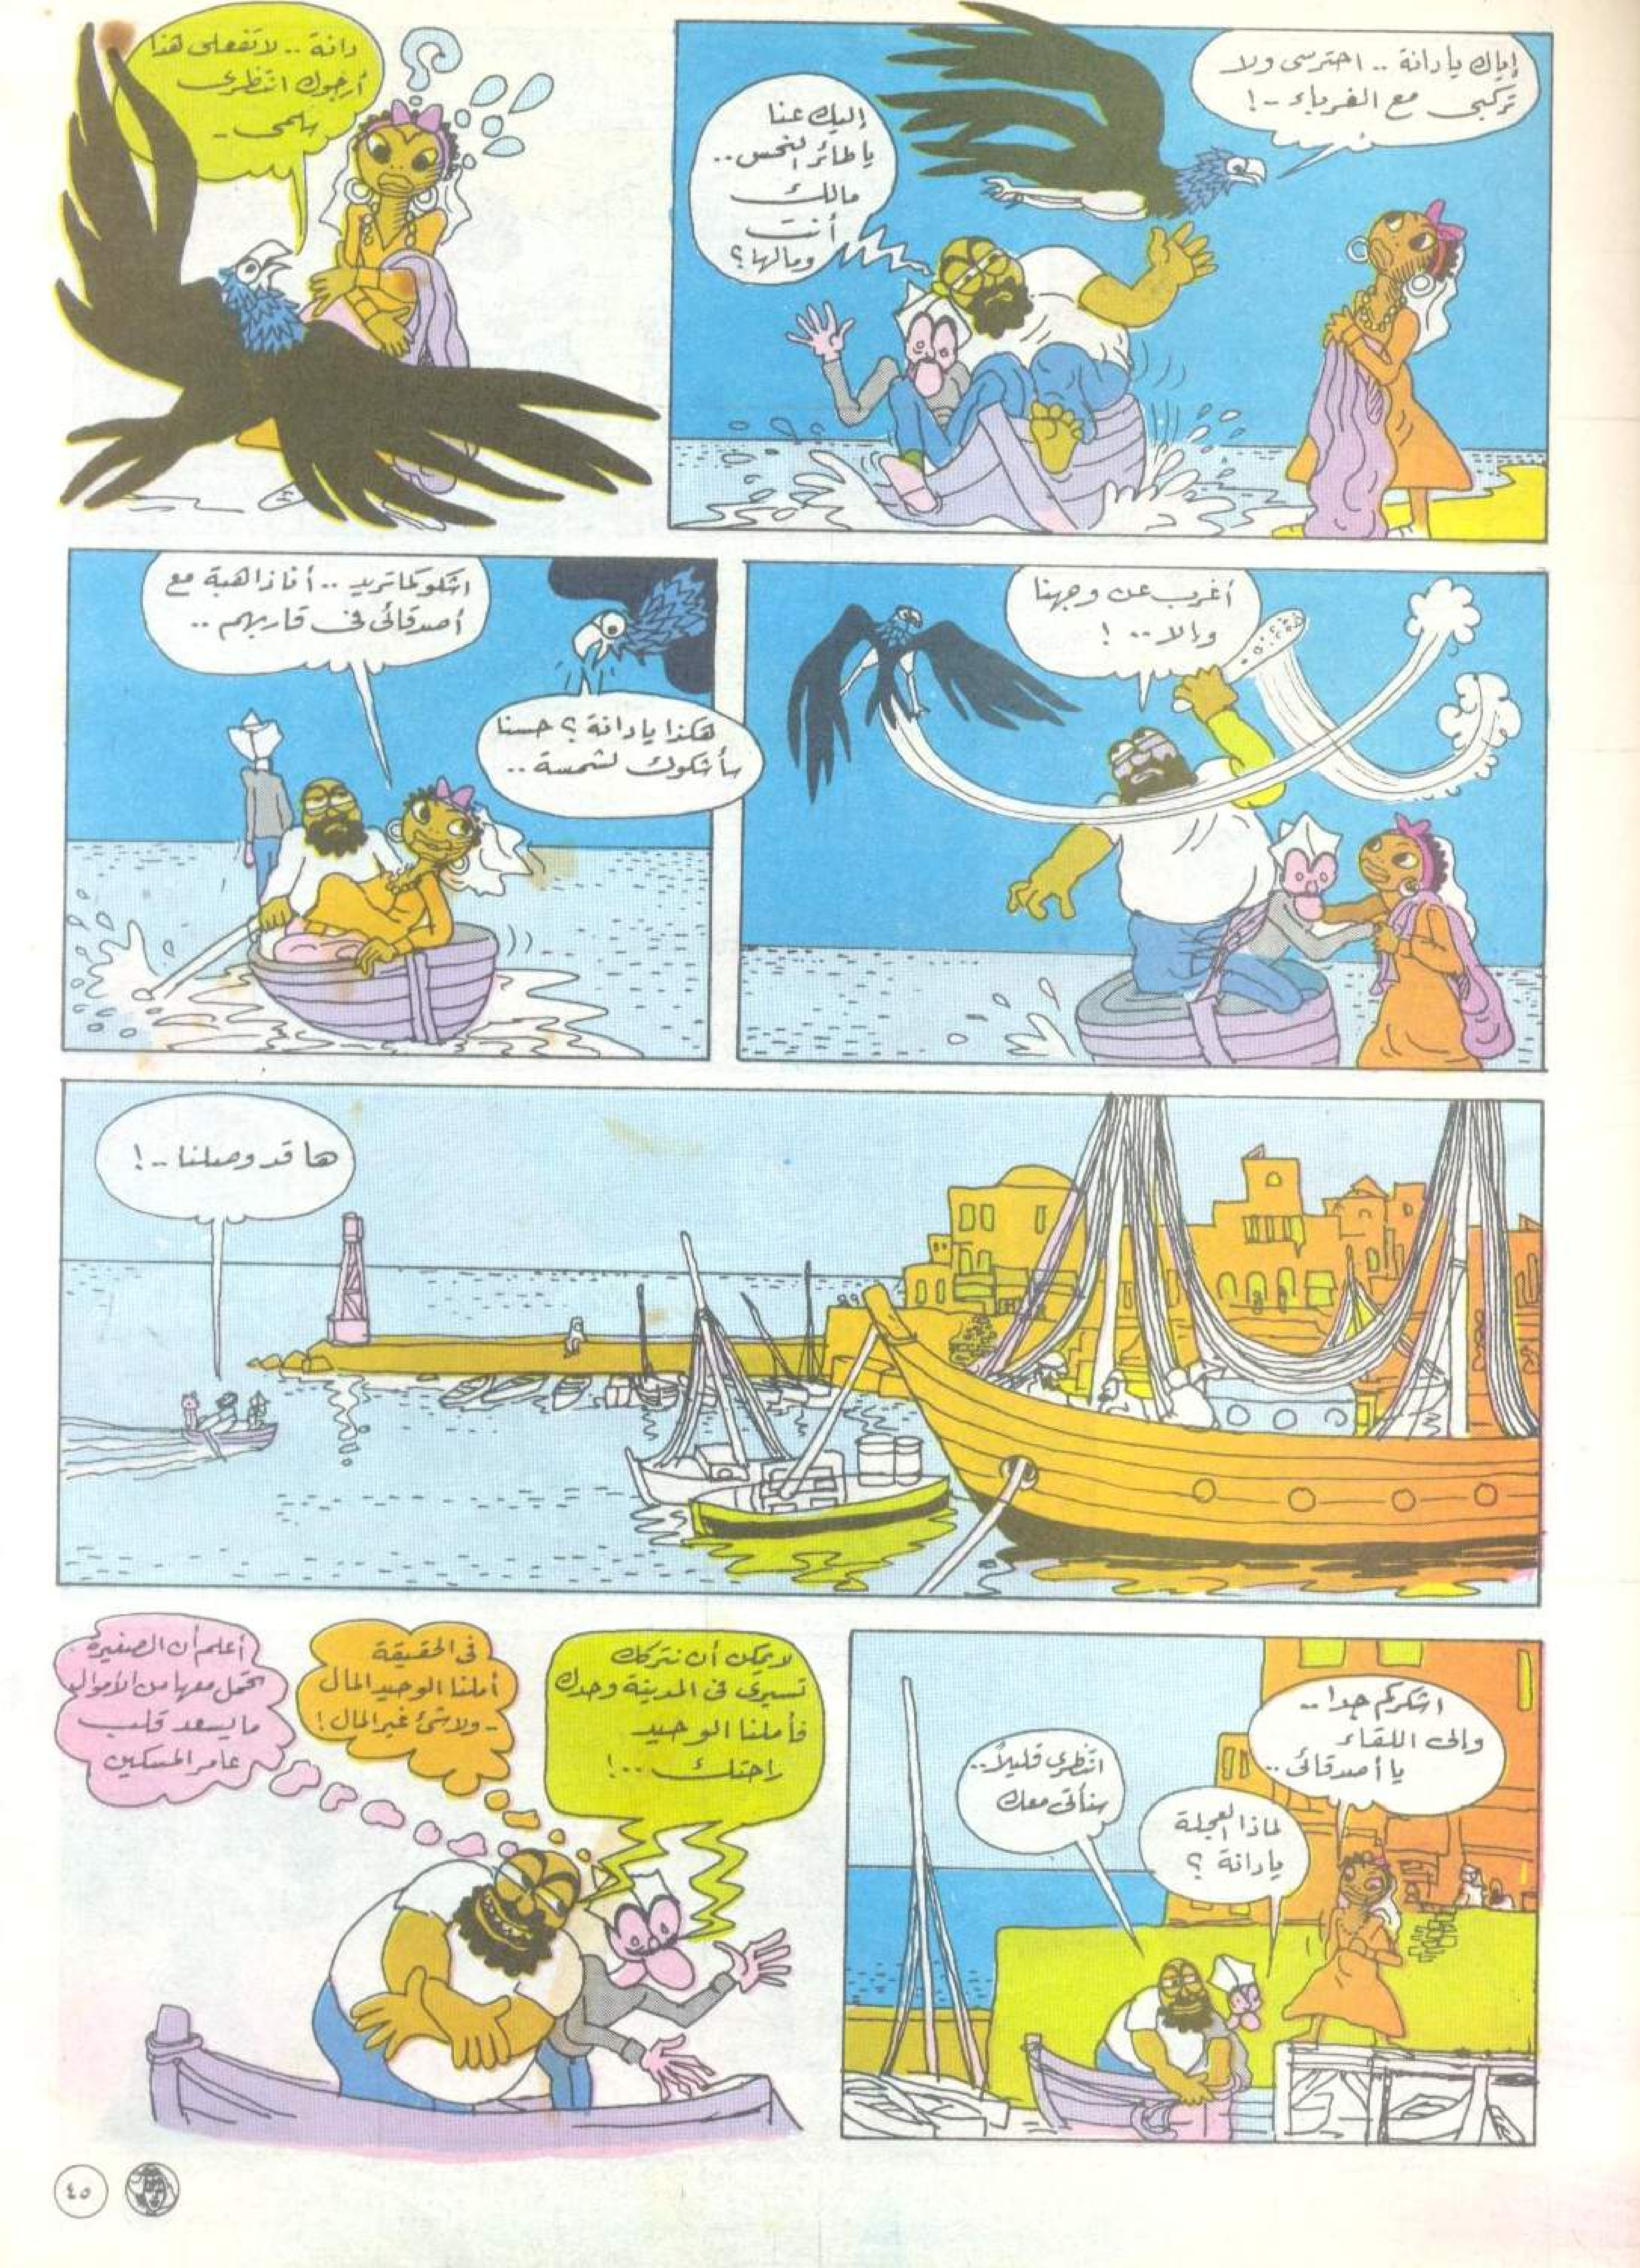 إياك يا دانة .. احترسى ولا
تركبى مع الغرباء ..!
إليك عنا
يا طائر النحس ..
مالك
أنت
ومالها ؟
دانة .. لا تفعلى هذا
أرجوك انتظرى
سلمى ..
أغرب عن وجهنا
وإلا .. !
هكذا يا دانة ؟ حسنا
سأشكوك لشمسة ..
اشكو كما تريد .. أنا ذاهبة مع
أصدقائى فى قاربهم ..
ها قد وصلنا ..!
اشكركم جدا ..
والى اللقاء
يا أصدقائى ..
لماذا العجلة
يا دانة ؟
انتظرى قليلاً ..
سنأتى معك
لا يمكن أن نتركك
تسيرى فى المدينة وحدك
فأملنا الوحيد
راحتك ...!
فى الحقيقة
أملنا الوحيد المال
.. ولا شئ غير المال !
أعلم أن الصغيرة
تحمل معها من الأموال
ما يسعد قلب
عامر المسكين
٤٥